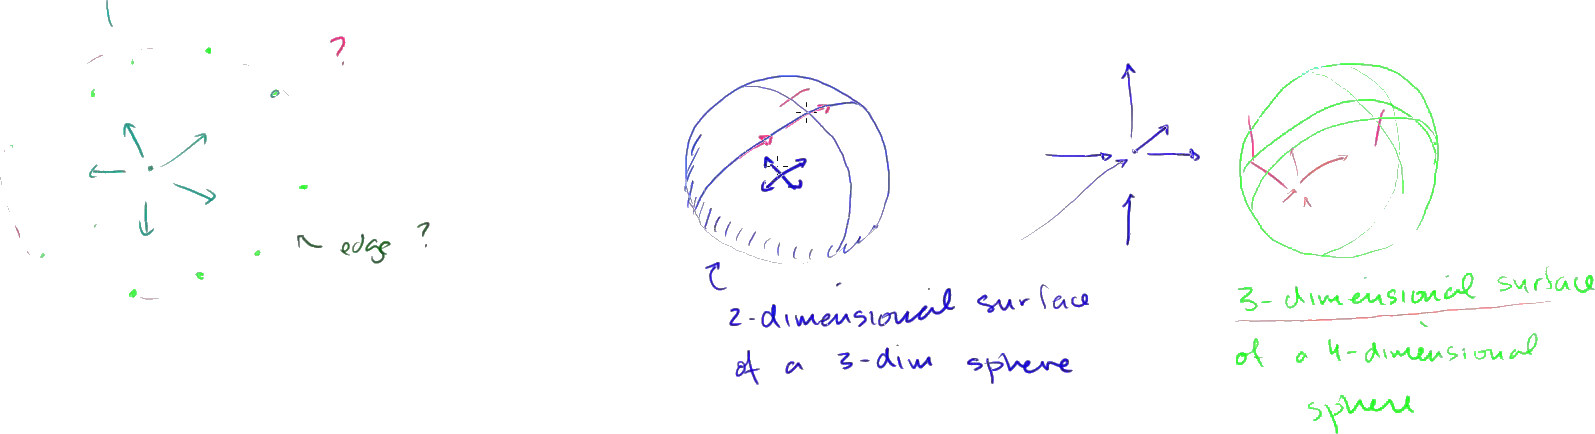 ?
edge ?
2-dimensional surface
of a 3-dim sphere
3-dimensional surface
of a 4-dimensional
sphere